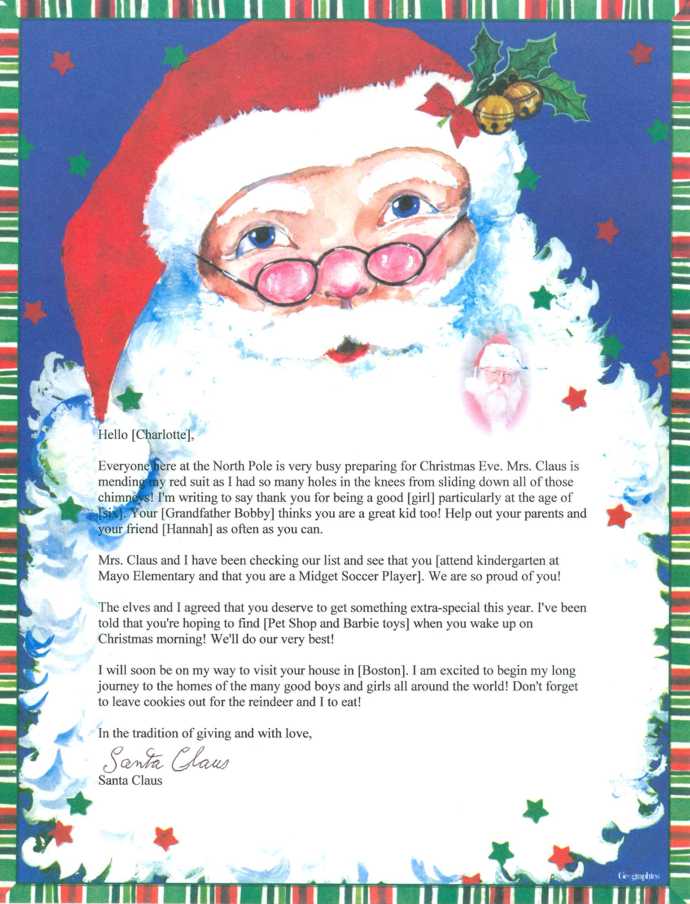 Hello [Charlotte],
Everyone here at the North Pole is very busy preparing for Christmas Eve. Mrs. Claus is
mending my red suit as I had so many holes in the knees from sliding down all of those
chimneys! I'm writing to say thank you for being a good [girl] particularly at the age of
[six]. Your [Grandfather Bobby] thinks you are a great kid too! Help out your parents and
your friend [Hannah] as often as you can.
Mrs. Claus and I have been checking our list and see that you [attend kindergarten at
Mayo Elementary and that you are a Midget Soccer Player]. We are so proud of you!
The elves and I agreed that you deserve to get something extra-special this year. I've been
told that you're hoping to find [Pet Shop and Barbie toys] when you wake up on
Christmas morning! We'll do our very best!
I will soon be on my way to visit your house in [Boston]. I am excited to begin my long
journey to the homes of the many good boys and girls all around the world! Don't forget
to leave cookies out for the reindeer and I to eat!
In the tradition of giving and with love,
Santa Claus
Santa Claus
Geographics